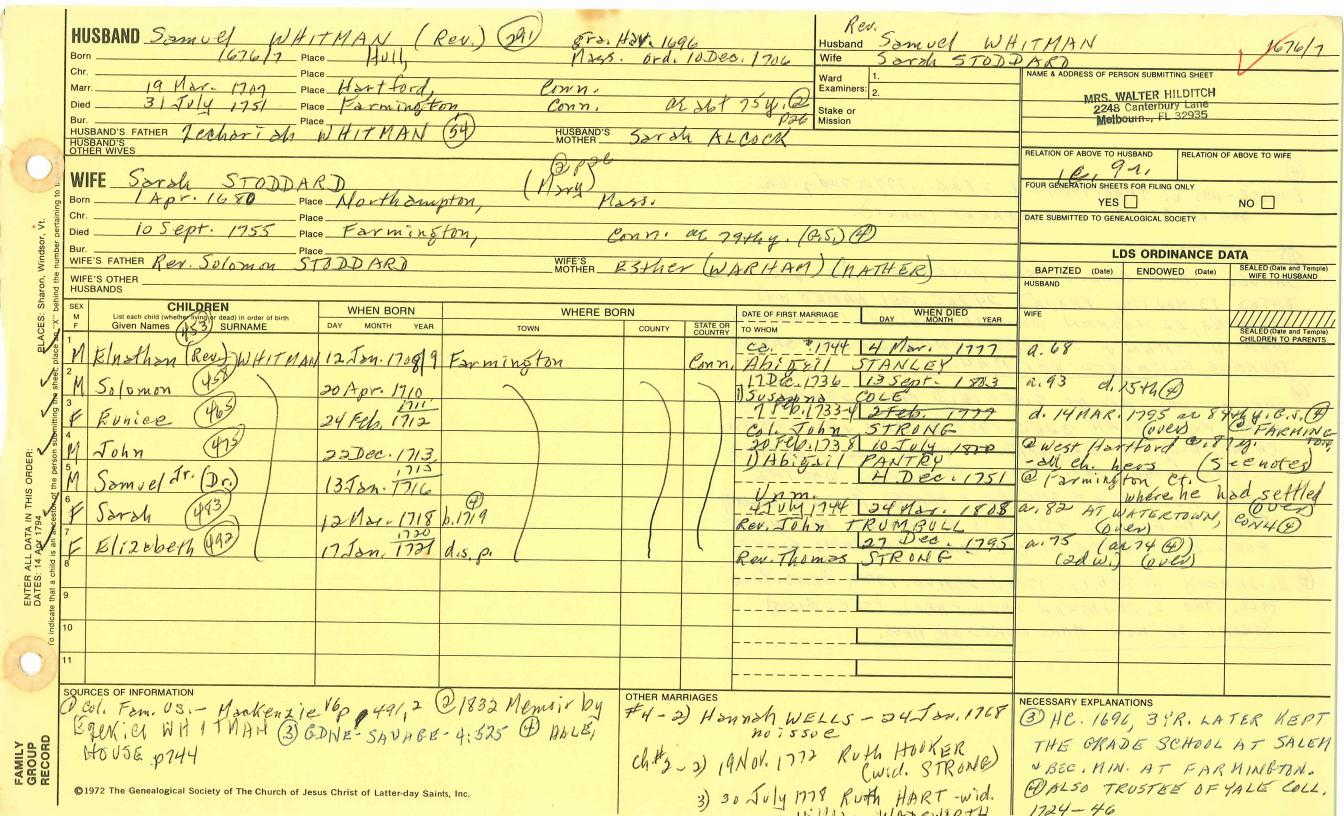 HUSBAND Samuel WHITMAN (Rev.) 291 gra. Har. 1696
Born 1676/7 Place Hull, Mass. ord. 10 Dec. 1706
Chr. Place
Marr. 19 Mar. 1707 Place Hartford, Conn.
Died 31 July 1751 Place Farmington Conn. ae abt 75 y. (2) p26
Bur. Place
HUSBAND'S FATHER Zechariah WHITMAN (54) HUSBAND'S MOTHER Sarah ALCOCK
HUSBAND'S OTHER WIVES
WIFE Sarah STODDARD (2) p26 (Mary)
Born 1 Apr. 1680 Place Northampton, Mass.
Chr. Place
Died 10 Sept. 1755 Place Farmington, Conn. ae 79th y. (G.S.) (4)
Bur. Place
WIFE'S FATHER Rev. Solomon STODDARD WIFE'S MOTHER Esther (WARHAM) (MATHER)
WIFE'S OTHER HUSBANDS
Rev.
Husband Samuel WHITMAN 1676/7
Wife Sarah STODDARD
Ward Examiners: 1.
2.
Stake or Mission
NAME & ADDRESS OF PERSON SUBMITTING SHEET
MRS. WALTER HILDITCH
2248 Canterbury Lane
Melbourn, FL 32935
RELATION OF ABOVE TO HUSBAND RELATION OF ABOVE TO WIFE
FOUR GENERATION SHEETS FOR FILING ONLY
YES NO
DATE SUBMITTED TO GENEALOGICAL SOCIETY
LDS ORDINANCE DATA
BAPTIZED (Date) ENDOWED (Date) SEALED (Date and Temple) WIFE TO HUSBAND
HUSBAND
WIFE
SEALED (Date and Temple) CHILDREN TO PARENTS
SEX M F CHILDREN WHEN BORN WHERE BORN DATE OF FIRST MARRIAGE WHEN DIED
List each child (whether living or dead) in order of birth
Given Names SURNAME DAY MONTH YEAR TOWN COUNTY STATE OR COUNTRY TO WHOM DAY MONTH YEAR
1 M Elnathan (Rev.) (453) WHITMAN 12 Jan. 1708/9 Farmington Conn. ca. 1744 4 Mar. 1777 a. 68
Abigail STANLEY
2 M Solomon (458) 20 Apr. 1710 17 Dec. 1736 13 Sept. 1803 a. 93 d. 15th (4)
1) Susanna COLE
3 F Eunice (465) 24 Feb. 1711/1712 7 Feb. 1733-4 2 Feb. 1777 d. 14 MAR. 1795 ae 84th y. G.S. (4) (over) @ FARMING TON
Col. John STRONG
4 M John (475) 22 Dec. 1713 20 Feb. 1738 10 July 1800 @ West Hartford
1) Abigail PANTRY - all ch. hers (see notes)
5 M Samuel Jr. (Dr.) 13 Jan. 1715/1716 4 Dec. 1751 @ Farmington Ct. where he had settled
Unm. (over)
6 F Sarah (483) 12 Mar. 1718 (4) b. 1719 4 July 1744 24 Mar. 1808 a. 82 AT WATERTOWN, CON4 (4) (over)
Rev. John TRUMBULL
7 F Elizabeth (492) 17 Jan. 1720/1721 d.s.p. 27 Dec. 1795 a. 75 (ae 74 (4))
Rev. Thomas STRONG (2d w.) (over)
8
9
10
11
SOURCES OF INFORMATION
(1) Col. Fam. US. - Mackenzie V6p 491,2 (2) 1832 Memoir by
Ezekiel WHITMAN (3) GDNE-SAVAGE-4:525 (4) DALE,
HOUSE p744
OTHER MARRIAGES
#4-2) Hannah WELLS - 24 Jan. 1768
no issue
ch#2-2) 19 Nov. 1772 Ruth HOOKER
(wid. STRONG)
3) 30 July 1778 Ruth HART - wid.
NECESSARY EXPLANATIONS
(3) HC. 1696, 3 YR. LATER KEPT
THE GRADE SCHOOL AT SALEM
& BEC. MIN. AT FARMINGTON.
(4) ALSO TRUSTEE OF YALE COLL.
1724-46
©1972 The Genealogical Society of The Church of Jesus Christ of Latter-day Saints, Inc.
FAMILY GROUP RECORD
ENTER ALL DATA IN THIS ORDER:
DATES: 14 Apr 1794 PLACES: Sharon, Windsor, Vt.